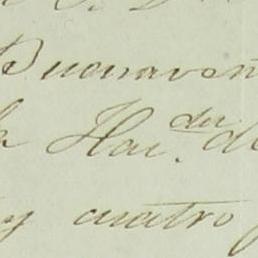 Buenaven
la Hac.da de
y cuatro